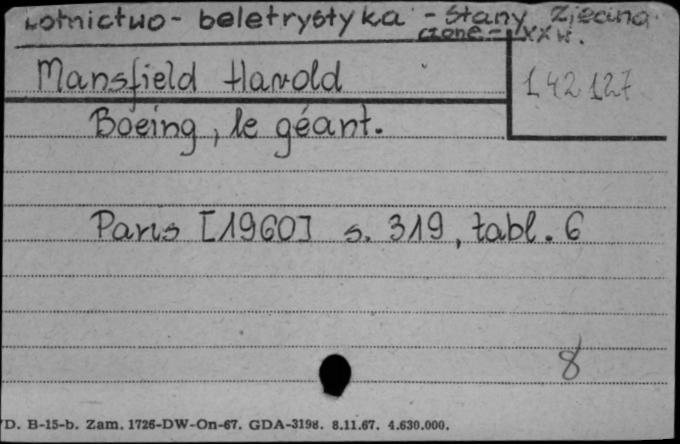 Lotnictwo - beletrystyka - Stany Zjedno
czone - XX w.
Mansfield Harold
142127
Boeing, le géant.
Paris [1960] s. 319, tabl. 6
8
D. B-15-b. Zam. 1726-DW-On-67. GDA-3198. 8.11.67. 4.630.000.